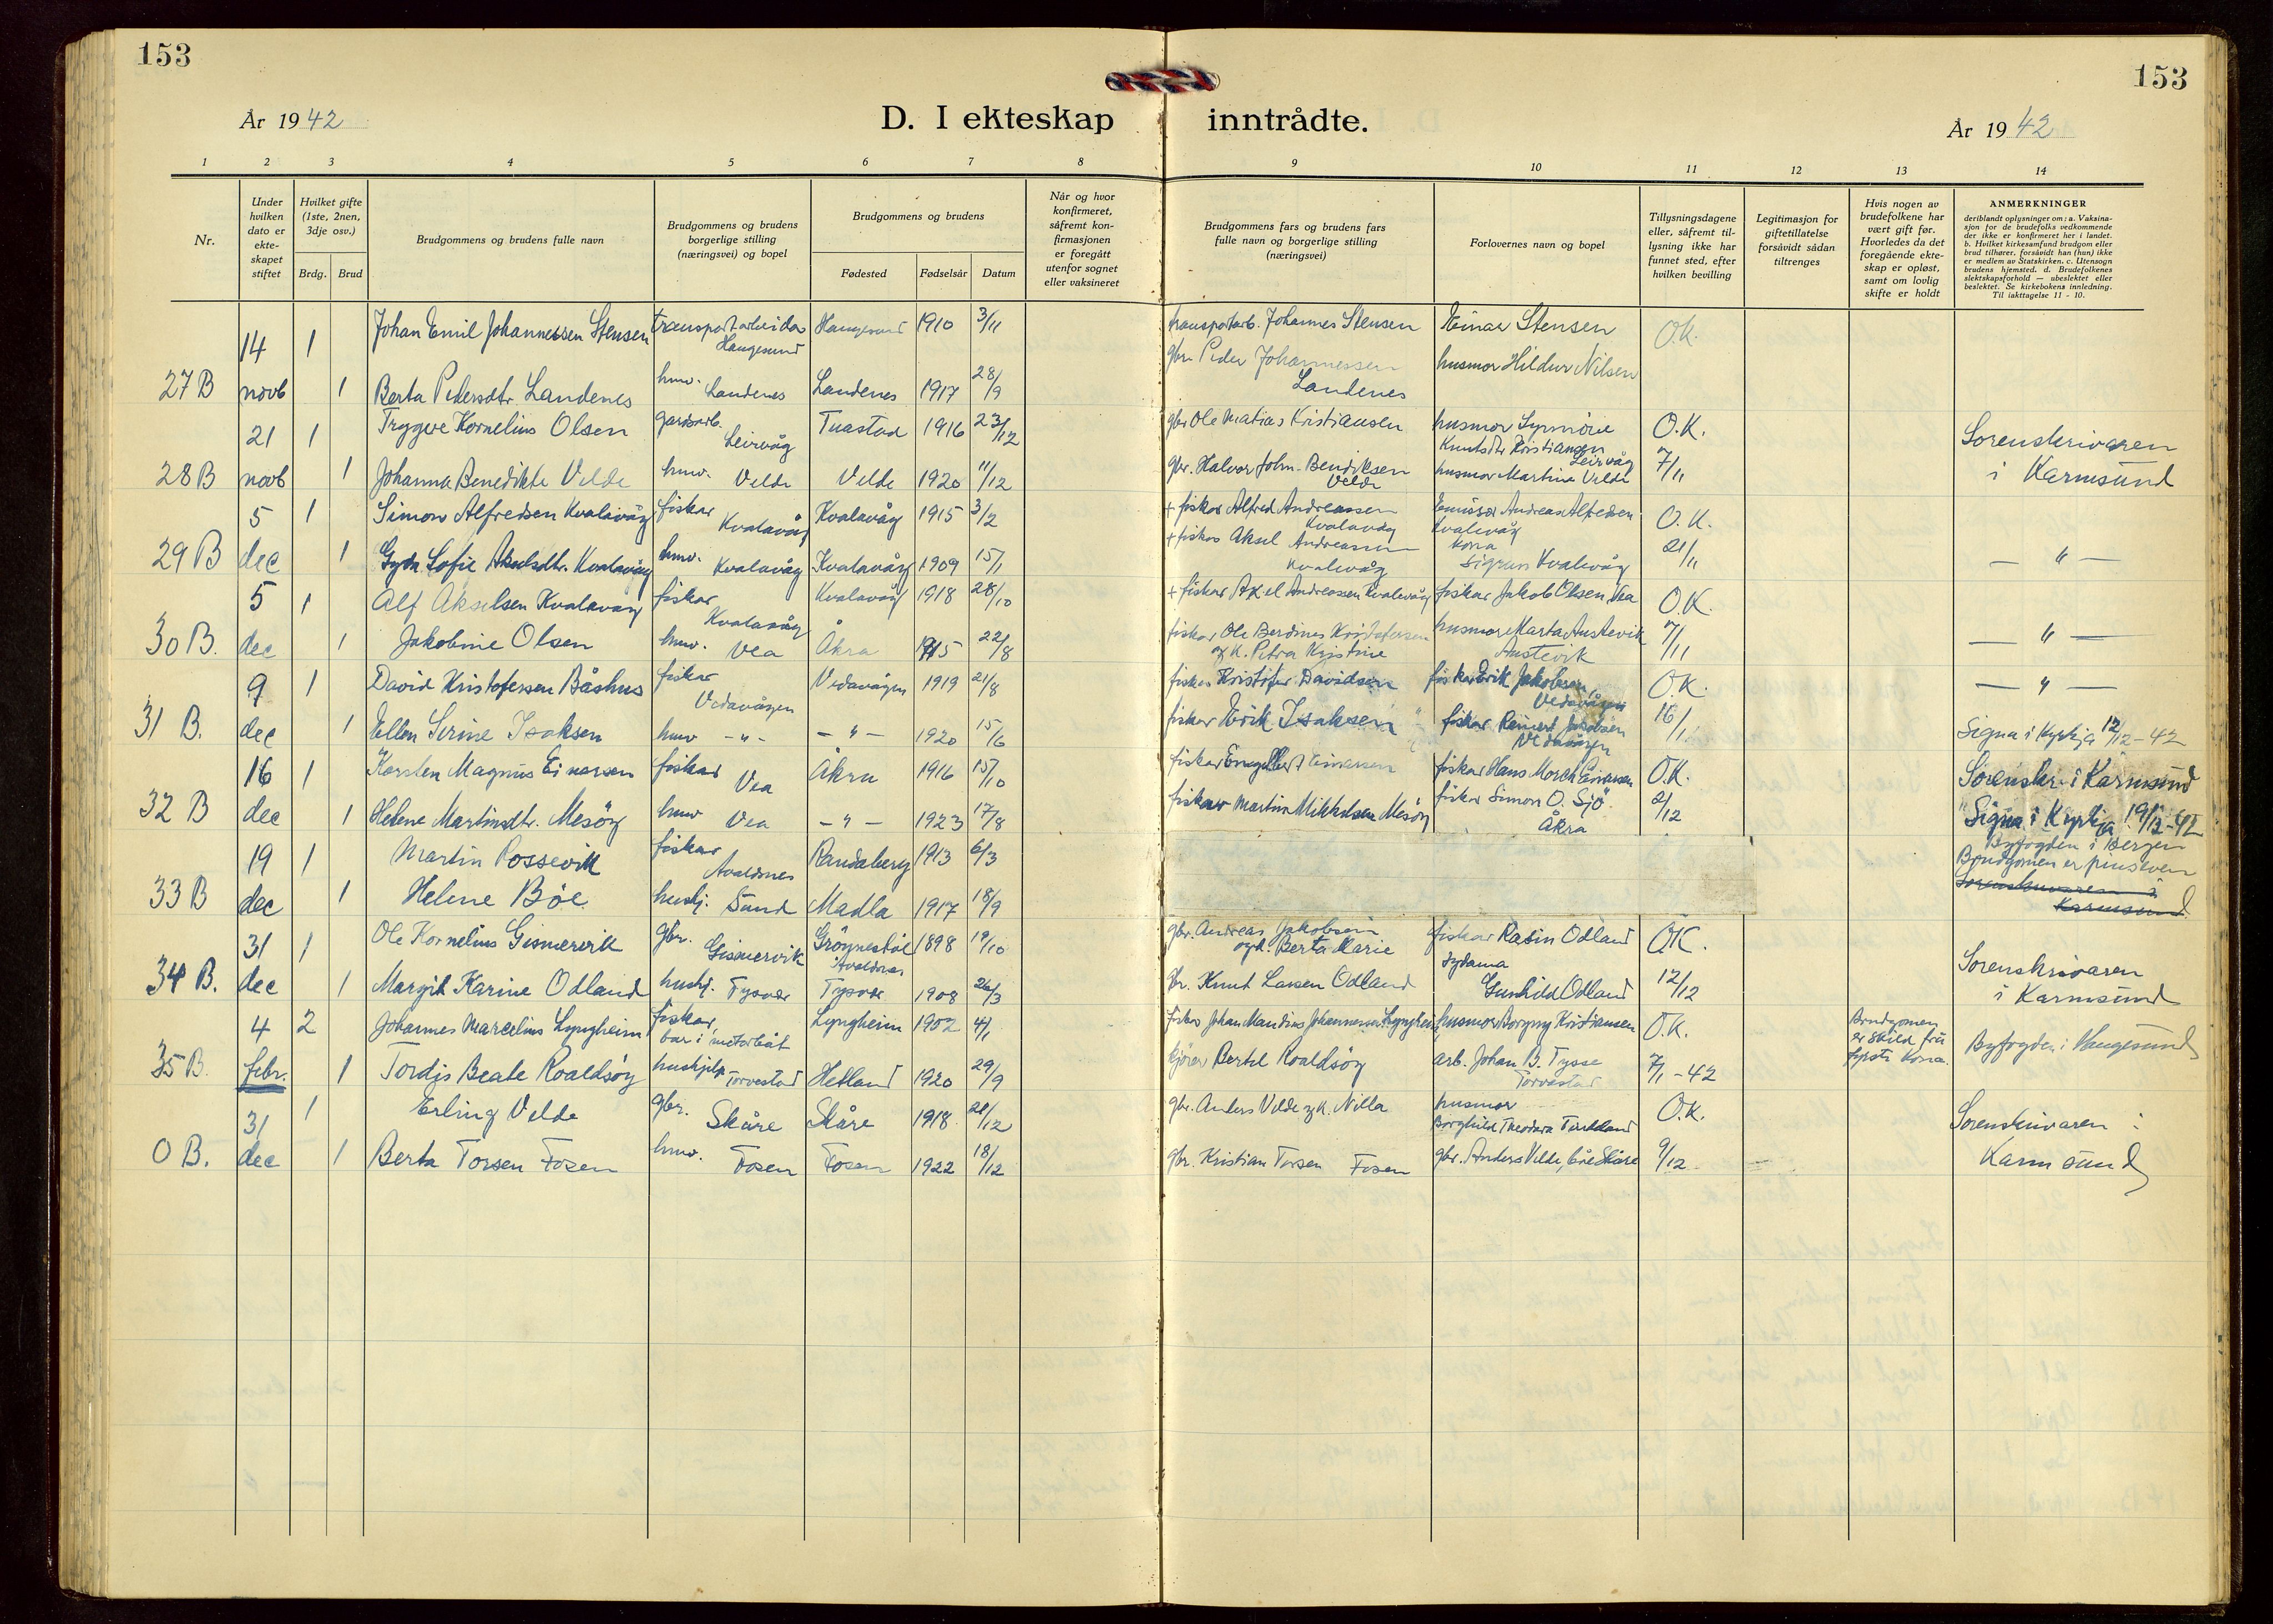 153
153
År 1942
D. I ekteskap inntrådte.
År 1942
1 2 3 4 5 6 7 8 9 10 11 12 13 14
Nr.
Under hvilken dato er ekte-skapet stiftet
Hvilket gifte (1ste, 2nen, 3dje osv.)
Brdg. Brud
Brudgommens og brudens fulle navn
Brudgommens og brudens borgerlige stilling (næringsvei) og bopel
Brudgommens og brudens
Fødested Fødselsår Datum
Når og hvor konfirmeret, såfremt kon-firmasjonen er foregått utenfor sognet eller vaksineret
Brudgommens fars og brudens fars fulle navn og borgerlige stilling (næringsvei)
Forlovernes navn og bopel
Tillysningsdagene eller, såfremt til-lysning ikke har funnet sted, efter hvilken bevilling
Legitimasjon for giftetillatelse forsåvidt sådan tiltrenges
Hvis nogen av brudefolkene har vært gift før. Hvorledes da det foregående ekte-skap er opløst, samt om lovlig skifte er holdt
ANMERKNINGER
deriblandt oplysninger om: a. Vaksina-sjon for de brudefolks vedkommende der ikke er konfirmeret her i landet. b. Hvilket kirkesamfund brudgom eller brud tilhører, forsåvidt han (hun) ikke er medlem av Statskirken. c. Utensogn brudens hjemsted. d. Brudefolkenes slektskapsforhold — ubeslektet eller beslektet. Se kirkebokens innledning. Til iakttagelse 11 - 10.
14 1 Johan Emil Johannessen Stensen transportarbeidar Haugesund Haugesund 1910 3/11 transportarb. Johannes Stensen Einar Stensen O.K.
27 B novb 1 Berta Pedersdtr. Landenes hmv. Landenes Landenes 1917 28/9 gbr. Peder Johannessen Landenes husmor Hildur Nilsen
21 1 Tryggve Kornelius Olsen gardsarb. Leirvåg Tuastad 1916 23/12 gbr. Ole Matias Kristiansen husmor Synnöve Knutsdtr. Kristiansen Leirvåg O.K. Sorenskrivaren
28 B novb 1 Johanna Benedikte Velde hmv. Velde Velde 1920 11/12 gbr. Halvor John. Bendiksen Velde husmor Martina Velde 7/11 i Karmsund
5 1 Simon Alfredsen Kvalavåg fiskar Kvalavåg Kvalavåg 1915 3/2 + fiskar Alfred Andreassen Kvalavåg Emissær Andreas Alfredsen Kvalevåg O.K.
29 B dec 1 Gyda Sofie Akselsdtr. Kvalavåg hmv. Kvalavåg Kvalavåg 1909 15/1 + fiskar Aksel Andreassen Kvalevåg kona Sigrun Kvalevåg 21/11 — " —
5 1 Alf Akselsen Kvalavåg fiskar Kvalavåg Kvalavåg 1918 28/10 + fiskar Axel Andreassen Kvalevåg fiskar Jakob Olsen, Vea O.K.
30 B. dec 1 Jakobine Olsen hmv. Vea Åkra 1915 22/8 fiskar Ole Berdines Kristofersen og k. Petra Kristine husmor Marta Austevik Austevik 7/11 — " —
9 1 David Kristofersen Båshus fiskar Vedavågen Vedavågen 1919 21/8 fiskar Kristofer Davidsen fiskar Erik Jakobsen Vedavågen O.K. — " —
31 B. dec 1 Ellen Serine Isaksen hmv — " — — " — 1920 15/6 fiskar Erik Isaksen fiskar Reinert Jakobsen Vedavågen 16/1 Signa i Kyrkja 12/12 - 42
16 1 Karsten Magnus Einarsen fiskar Vea Åkra 1916 15/10 fiskar Engelbert Einarsen fiskar Hans Morch Einarsen O.K. Sorenskr. i Karmsund
32 B dec 1 Helene Martinsdtr. Mesöy hmv Vea — " — 1923 17/8 fiskar Martin Mikkelsen Mesöy fiskar Simon O. Sjö Åkra 2/12 Signa i Kyrkja 19/12 - 42
19 1 Martin Possevik fiskar Avaldsnes Randaberg 1913 6/3 Byfogden i Bergen Brudgomen er pinseven
33 B dec 1 Helene Böe hushj. Sund Madla 1917 18/9 Sorenskrivaren i Karmsund
31 1 Ole Kornelius Gismervik gbr. Gismervik Grönnestöl Avaldsnes 1898 19/10 gbr. Andreas Jakobsen og k. Berta Marie fiskar Rasin Odland O.K. Sorenskrivaren
34 B. dec 1 Margit Karine Odland hushj. Tysvær Tysvær 1908 26/3 gbr. Knut Larsen Odland sydama Gunhild Odland 12/12 i Karmsund
4 2 Johannes Marcelius Lyngheim fiskar, bur i motorbåt Lyngheim 1902 4/1 fiskar Johan Mandius Johannessen Lyngheim husmor Borgny Kristiansen O.K. Brudgomen er skild frå fyrste kona.
35 B. febr. 1 Tordis Beate Roaldsöy hushjelp Torvestad Hetland 1920 29/9 kjörer Bertel Roaldsöy arb. Johan B. Tysse Torvestad 7/1 - 42 Byfogden i Haugesund
31 1 Erling Velde gbr. Skåre Skåre 1918 21/12 gbr. Anders Velde og k. Nilla husmor Borghild Theodora O.K. Sorenskrivaren i
0 B. dec 1 Berta Torsen Fosen hmv. Fosen Fosen 1922 18/12 gbr. Kristian Torsen Fosen gbr. Anders Velde, båe Skåre 9/12 Karmsund